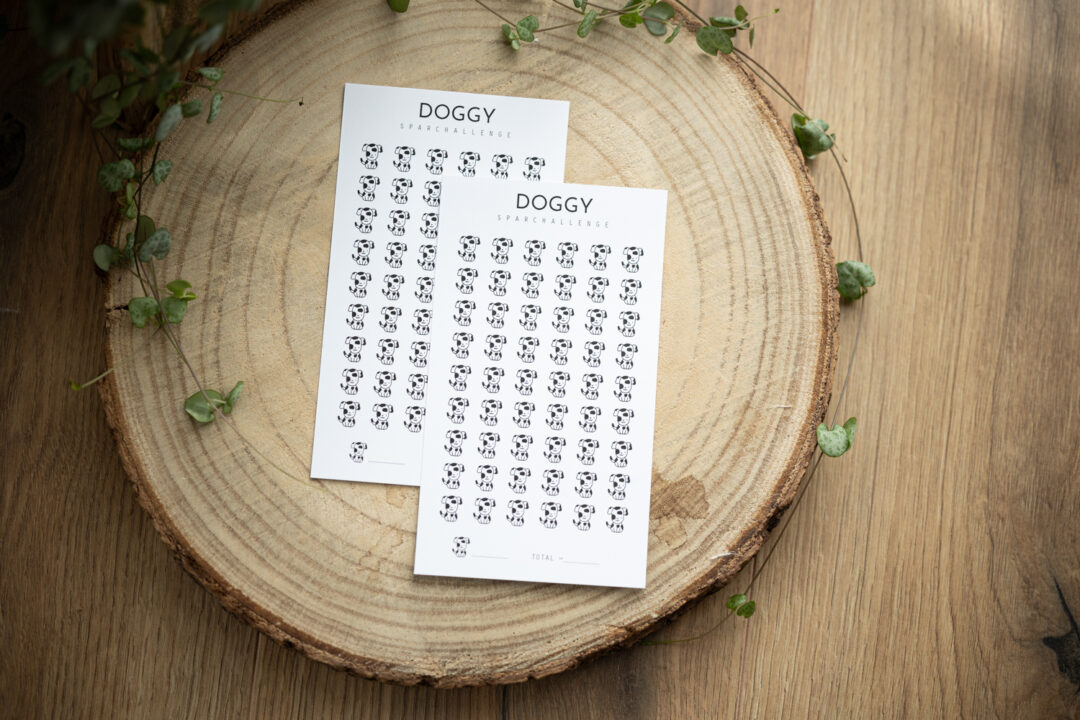 DOGGY
SPARCHALLENGE
DOGGY
SPARCHALLENGE
TOTAL =